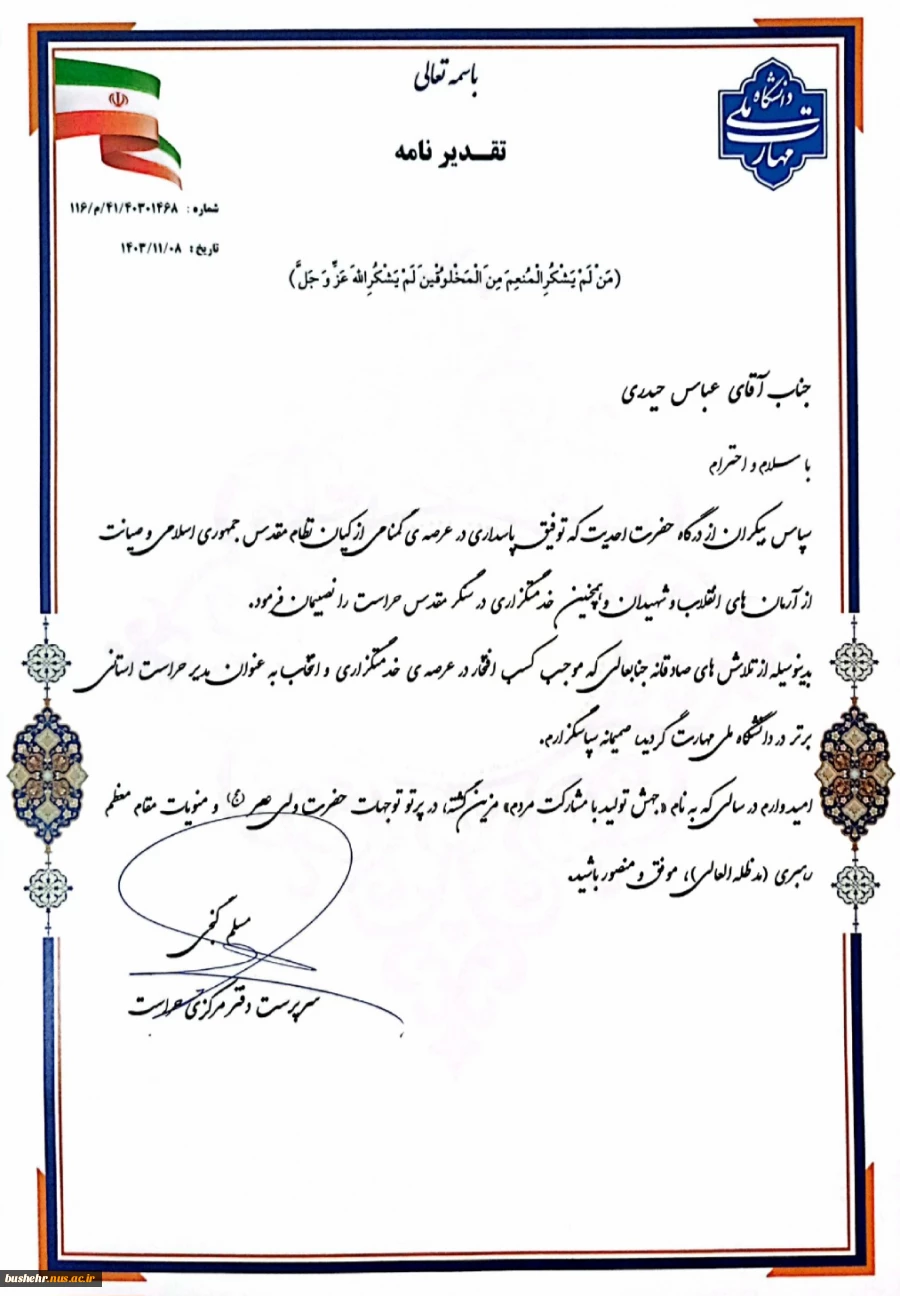 باسمه تعالی
دانشگاه ملی مهارت
تقـدیر نامه
شماره: ۱۱۶/م/۴۱/۴۰۳۰۱۴۶۸
تاریخ: ۱۴۰۳/۱۱/۰۸
(مَنْ لَمْ یَشْکُرِ الْمُنعِمَ مِنَ الْمَخْلوُقینَ لَمْ یَشْکُرِ اللهَ عَزَّ وَ جَلَّ)
جناب آقای عباس حیدری
با سلام و احترام
سپاس بیکران از درگاه حضرت احدیت که توفیق پاسداری در عرصه ی گمنامی از کیان نظام مقدس جمهوری اسلامی و صیانت
از آرمان های انقلاب و شهیدان و همچنین خدمتگزاری در سنگر مقدس حراست را نصیبمان فرمود.
بدینوسیله از تلاش های صادقانه جنابعالی که موجب کسب افتخار در عرصه ی خدمتگزاری و انتخاب به عنوان مدیر حراست استانی
برتر در دانشگاه ملی مهارت گردید، صمیمانه سپاسگزارم.
امیدوارم در سالی که به نام «جهش تولید با مشارکت مردم» مزین گشته، در پرتو توجهات حضرت ولی عصر (عج) و منویات مقام معظم
رهبری (مدظله العالی)، موفق و منصور باشید.
مسلم گنجی
سرپرست دفتر مرکزی حراست
bushehr.nus.ac.ir